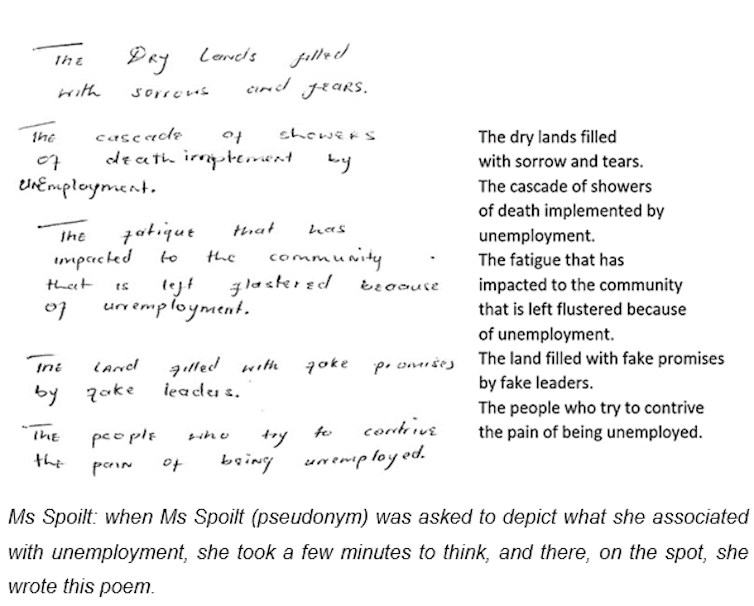 The Dry Lands filled
with sorrows and fears.
The cascade of showers
of death implement by
unEmployment.
The fatigue that has
impacted to the community
that is left flastered because
of unemployment.
The Land filled with fake promises
by fake leaders.
The people who try to contrive
the pain of being unemployed.
The dry lands filled
with sorrow and tears.
The cascade of showers
of death implemented by
unemployment.
The fatigue that has
impacted to the community
that is left flustered because
of unemployment.
The land filled with fake promises
by fake leaders.
The people who try to contrive
the pain of being unemployed.
Ms Spoilt: when Ms Spoilt (pseudonym) was asked to depict what she associated
with unemployment, she took a few minutes to think, and there, on the spot, she
wrote this poem.